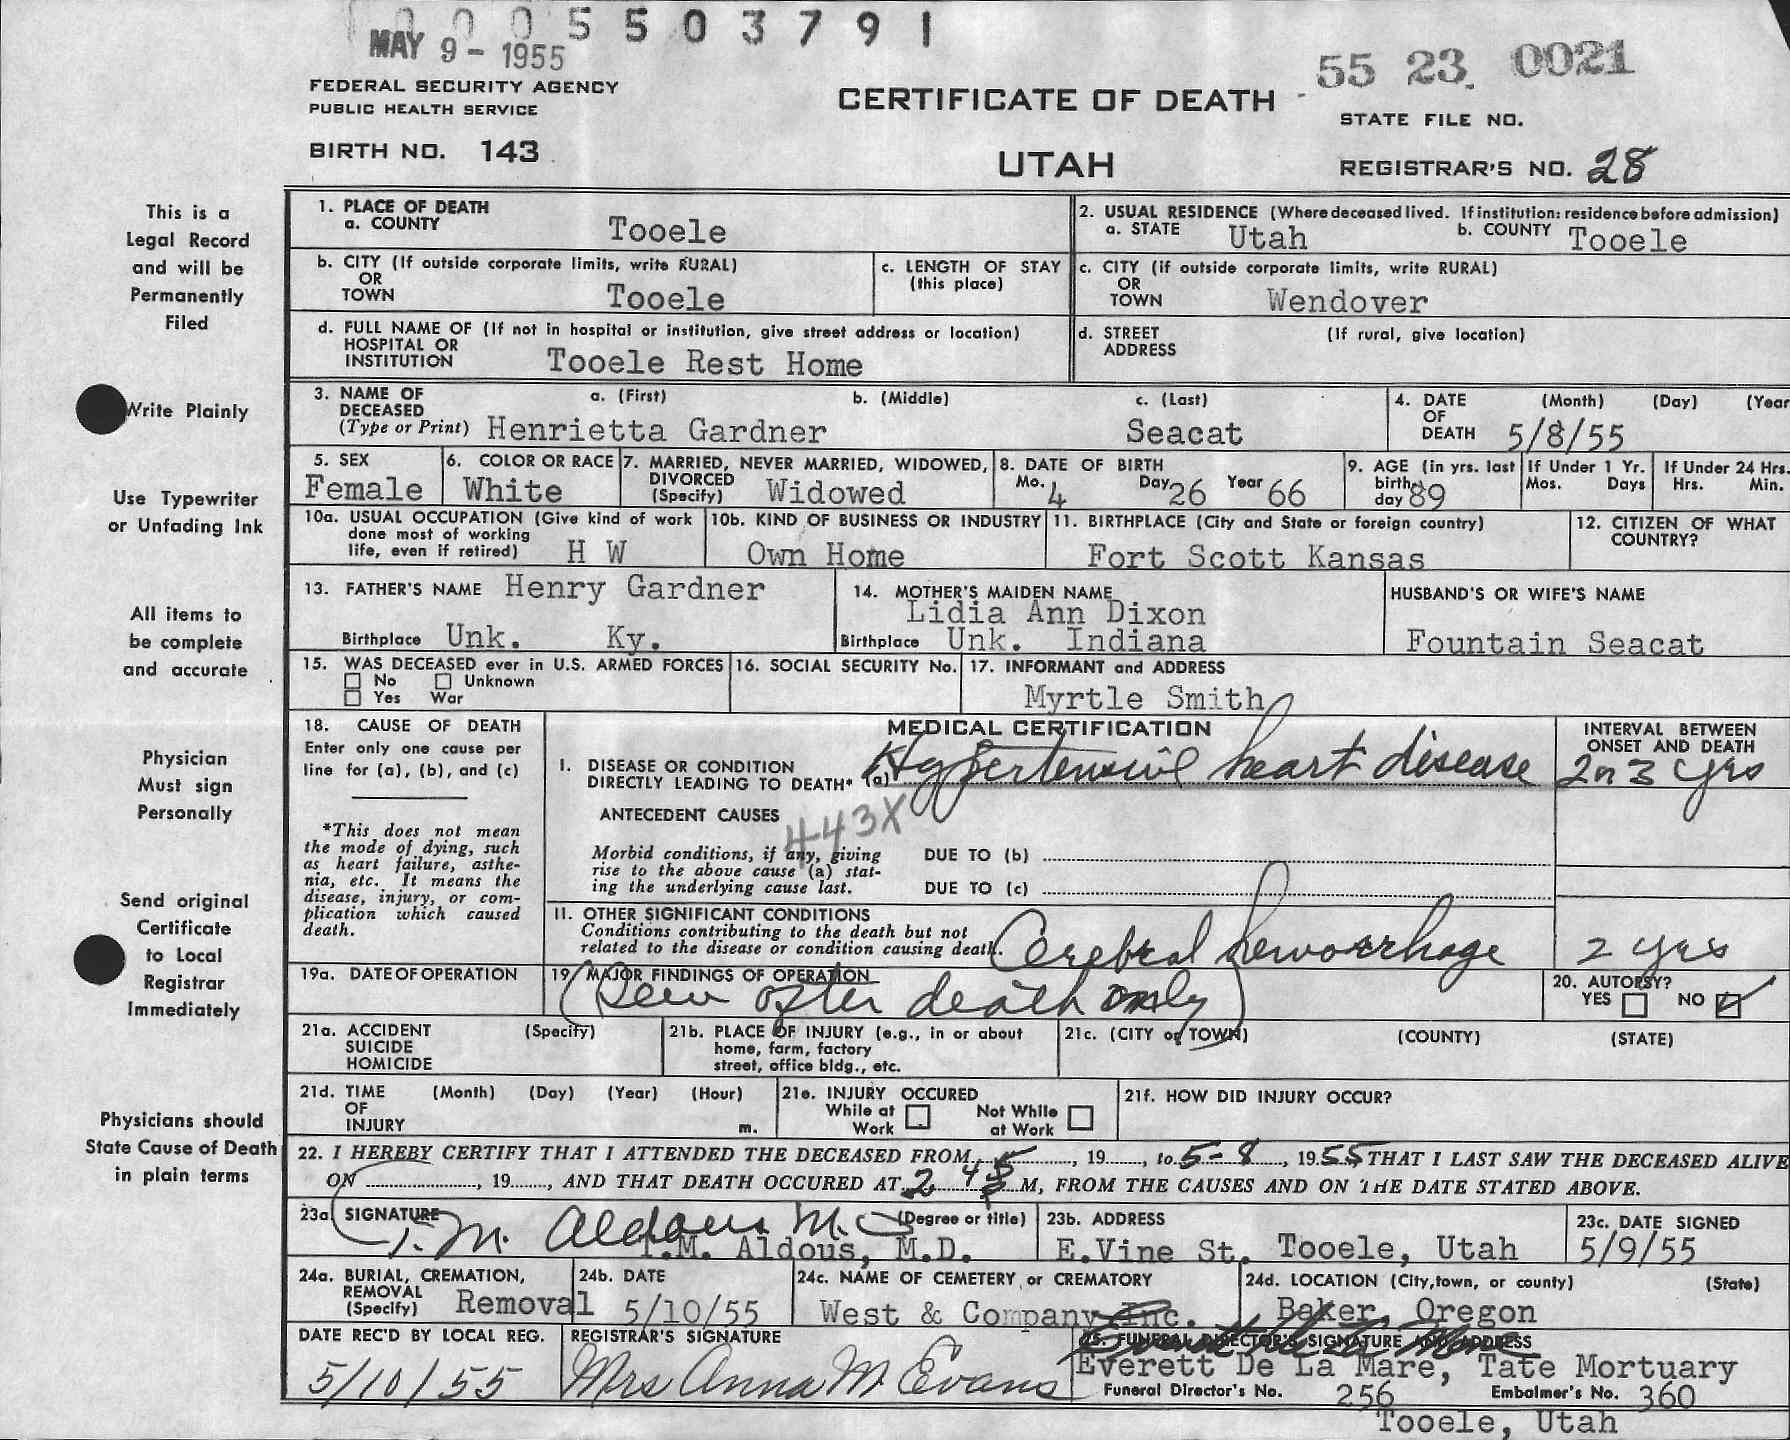 0005503791
MAY 9 - 1955
55 23. 0021
FEDERAL SECURITY AGENCY
PUBLIC HEALTH SERVICE
CERTIFICATE OF DEATH
STATE FILE NO.
BIRTH NO. 143
UTAH
REGISTRAR'S NO. 28
This is a
Legal Record
and will be
Permanently
Filed
Write Plainly
Use Typewriter
or Unfading Ink
All items to
be complete
and accurate
Physician
Must sign
Personally
Send original
Certificate
to Local
Registrar
Immediately
Physicians should
State Cause of Death
in plain terms
1. PLACE OF DEATH
a. COUNTY Tooele
2. USUAL RESIDENCE (Where deceased lived. If institution: residence before admission)
a. STATE Utah b. COUNTY Tooele
b. CITY (If outside corporate limits, write RURAL)
OR
TOWN Tooele
c. LENGTH OF STAY
(this place)
c. CITY (if outside corporate limits, write RURAL)
OR
TOWN Wendover
d. FULL NAME OF (If not in hospital or institution, give street address or location)
HOSPITAL OR
INSTITUTION Tooele Rest Home
d. STREET (If rural, give location)
ADDRESS
3. NAME OF a. (First) b. (Middle) c. (Last)
DECEASED
(Type or Print) Henrietta Gardner Seacat
4. DATE (Month) (Day) (Year
OF
DEATH 5/8/55
5. SEX
Female
6. COLOR OR RACE
White
7. MARRIED, NEVER MARRIED, WIDOWED,
DIVORCED
(Specify) Widowed
8. DATE OF BIRTH
Mo. 4 Day 26 Year 66
9. AGE (in yrs. last
birth-
day 89
If Under 1 Yr.
Mos. Days
If Under 24 Hrs.
Hrs. Min.
10a. USUAL OCCUPATION (Give kind of work
done most of working
life, even if retired) H W
10b. KIND OF BUSINESS OR INDUSTRY
Own Home
11. BIRTHPLACE (City and State or foreign country)
Fort Scott Kansas
12. CITIZEN OF WHAT
COUNTRY?
13. FATHER'S NAME Henry Gardner
Birthplace Unk. Ky.
14. MOTHER'S MAIDEN NAME
Lidia Ann Dixon
Birthplace Unk. Indiana
HUSBAND'S OR WIFE'S NAME
Fountain Seacat
15. WAS DECEASED ever in U.S. ARMED FORCES
No Unknown
Yes War
16. SOCIAL SECURITY No.
17. INFORMANT and ADDRESS
Myrtle Smith
18. CAUSE OF DEATH
Enter only one cause per
line for (a), (b), and (c)
*This does not mean
the mode of dying, such
as heart failure, asthe-
nia, etc. It means the
disease, injury, or com-
plication which caused
death.
MEDICAL CERTIFICATION
INTERVAL BETWEEN
ONSET AND DEATH
I. DISEASE OR CONDITION
DIRECTLY LEADING TO DEATH* (a) Hypertensive heart disease 2 or 3 yrs
ANTECEDENT CAUSES
443X
Morbid conditions, if any, giving
rise to the above cause (a) stat-
ing the underlying cause last.
DUE TO (b)
DUE TO (c)
II. OTHER SIGNIFICANT CONDITIONS
Conditions contributing to the death but not
related to the disease or condition causing death. Cerebral hemorrhage 2 yrs
19a. DATE OF OPERATION
19 MAJOR FINDINGS OF OPERATION
(Seen after death only)
20. AUTOPSY?
YES NO
21a. ACCIDENT (Specify)
SUICIDE
HOMICIDE
21b. PLACE OF INJURY (e.g., in or about
home, farm, factory
street, office bldg., etc.
21c. (CITY or TOWN) (COUNTY) (STATE)
21d. TIME (Month) (Day) (Year) (Hour)
OF
INJURY m.
21e. INJURY OCCURED
While at Work Not While at Work
21f. HOW DID INJURY OCCUR?
22. I HEREBY CERTIFY THAT I ATTENDED THE DECEASED FROM , 19 , to 5-8 , 1955 THAT I LAST SAW THE DECEASED ALIVE
ON , 19 , AND THAT DEATH OCCURED AT 2 45 M, FROM THE CAUSES AND ON THE DATE STATED ABOVE.
23a SIGNATURE (Degree or title)
T. M. Aldous M.D.
T.M. Aldous, M.D.
23b. ADDRESS
E.Vine St. Tooele, Utah
23c. DATE SIGNED
5/9/55
24a. BURIAL, CREMATION,
REMOVAL
(Specify) Removal
24b. DATE
5/10/55
24c. NAME OF CEMETERY or CREMATORY
West & Company Inc.
24d. LOCATION (City, town, or county) (State)
Baker, Oregon
DATE REC'D BY LOCAL REG.
5/10/55
REGISTRAR'S SIGNATURE
Mrs Anna M. Evans
25. FUNERAL DIRECTOR'S SIGNATURE AND ADDRESS
Everett De La Mare, Tate Mortuary
Funeral Director's No. 256 Embalmer's No. 360
Tooele, Utah